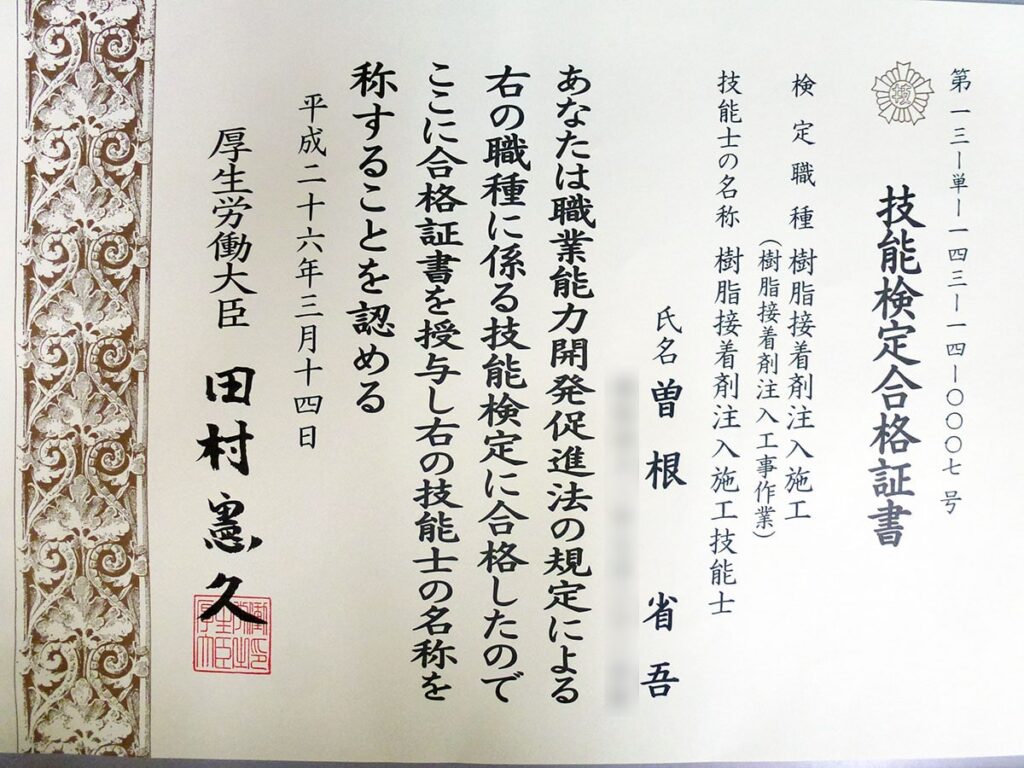 第一三ー単ー一四三ー一四ー〇〇〇七号
技能検定合格証書
検定職種 樹脂接着剤注入施工
(樹脂接着剤注入工事作業)
技能士の名称 樹脂接着剤注入施工技能士
氏名 曽根 省吾
あなたは職業能力開発促進法の規定による
右の職種に係る技能検定に合格したので
ここに合格証書を授与し右の技能士の名称を
称することを認める
平成二十六年三月十四日
厚生労働大臣 田村憲久